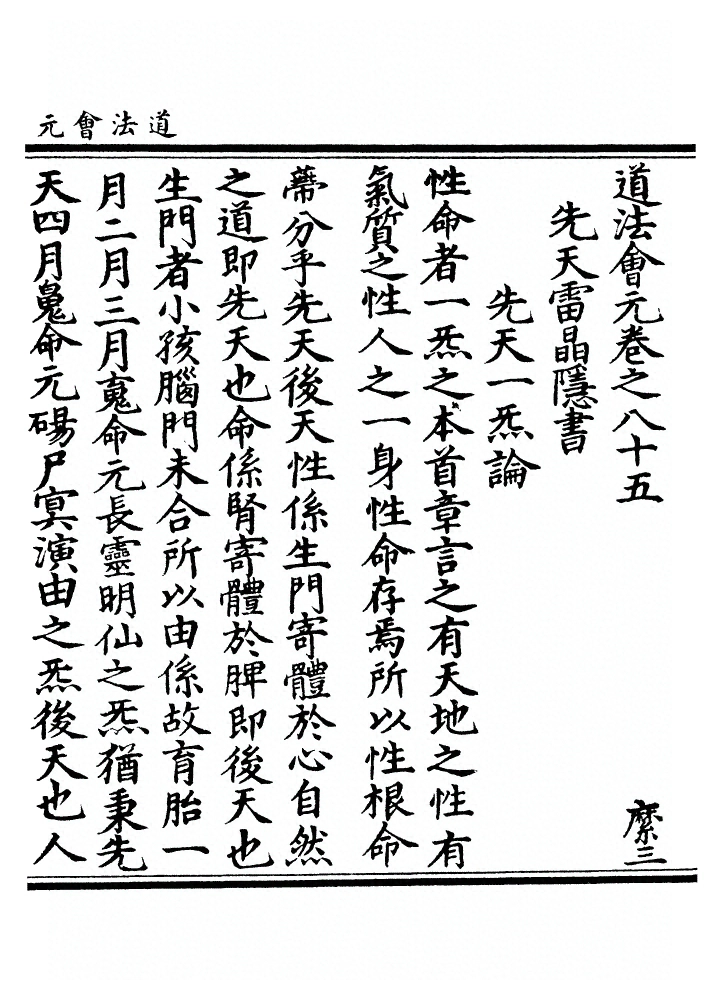 道法會元
道法會元卷之八十五
縻三
先天雷晶隱書
先天一炁論
性命者一炁之本首章言之有天地之性有
氣質之性人之一身性命存焉所以性根命
蔕分乎先天後天性係生門寄體於心自然
之道即先天也命係腎寄體於脾即後天也
生門者小孩腦門未合所以由係故育胎一
月二月三月䰟命元長靈明仙之炁猶秉先
天四月䰟命元碭尸冥演由之炁後天也人